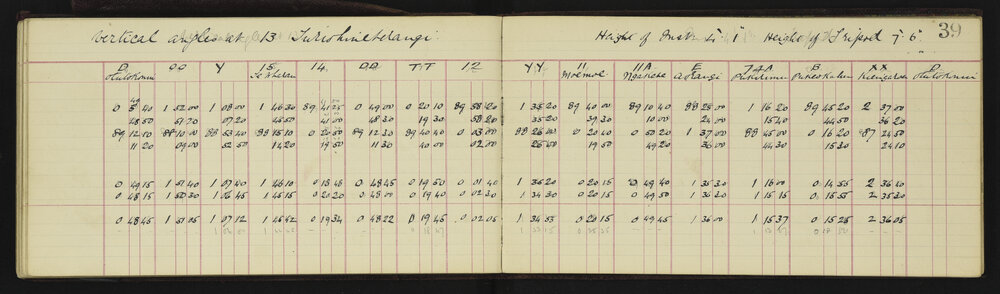 Vertical angles at 13
Height of Inst 4' 1" Height of Tripod 7' 6" 39
D Y 15 14 DD TT 12 YY 11 11A E 7AA B XX D
Te Whetau Moemoe
0 40 1 52 00 1 08 00 1 46 30 89 0 49 00 0 20 10 89 58 20 1 35 20 89 40 00 89 10 40 88 25 00 1 16 20 89 45 20 2 37 00
48 50 51 70 07 20 45 50 41 00 48 30 19 30 58 20 35 20 39 30 10 00 24 00 15 40 44 50 36 20
89 12 10 88 10 00 88 53 40 88 15 10 0 20 50 89 12 30 89 40 40 0 03 00 88 26 00 0 20 40 0 50 20 1 37 00 88 45 00 0 16 20 87 24 50
11 20 09 00 52 50 14 20 19 50 11 30 40 00 02 00 25 50 19 50 49 20 36 00 44 30 15 30 24 10
0 49 15 1 51 40 1 07 40 1 46 10 0 18 48 0 48 45 0 19 50 0 01 40 1 35 20 0 20 15 0 49 40 1 35 30 1 16 00 0 14 55 2 36 40
0 48 15 1 50 30 1 06 45 1 45 15 0 20 20 0 48 00 0 19 40 0 02 30 1 34 30 0 20 15 0 49 50 1 36 30 1 15 15 0 15 55 2 35 30
0 48 45 1 51 05 1 07 12 1 45 42 0 19 34 0 48 22 0 19 45 0 02 05 1 34 55 0 20 15 0 49 45 1 36 00 1 15 37 0 15 25 2 36 05